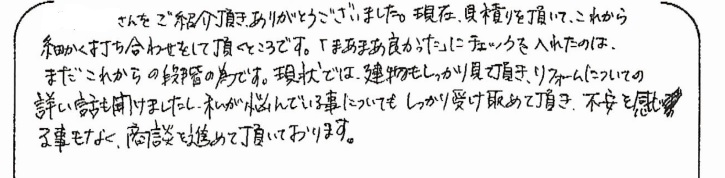 さんをご紹介頂きありがとうございました。現在、見積りを頂いて、これから
細かく打ち合わせをして頂くところです。「まあまあ良かった」にチェックを入れたのは、
まだこれからの段階の為です。現状では、建物もしっかり見て頂き、リフォームについての
詳しい話も聞けましたし、私が悩んでいる事についてもしっかり受け取めて頂き、不安を感じ
る事もなく、商談を進めて頂いております。